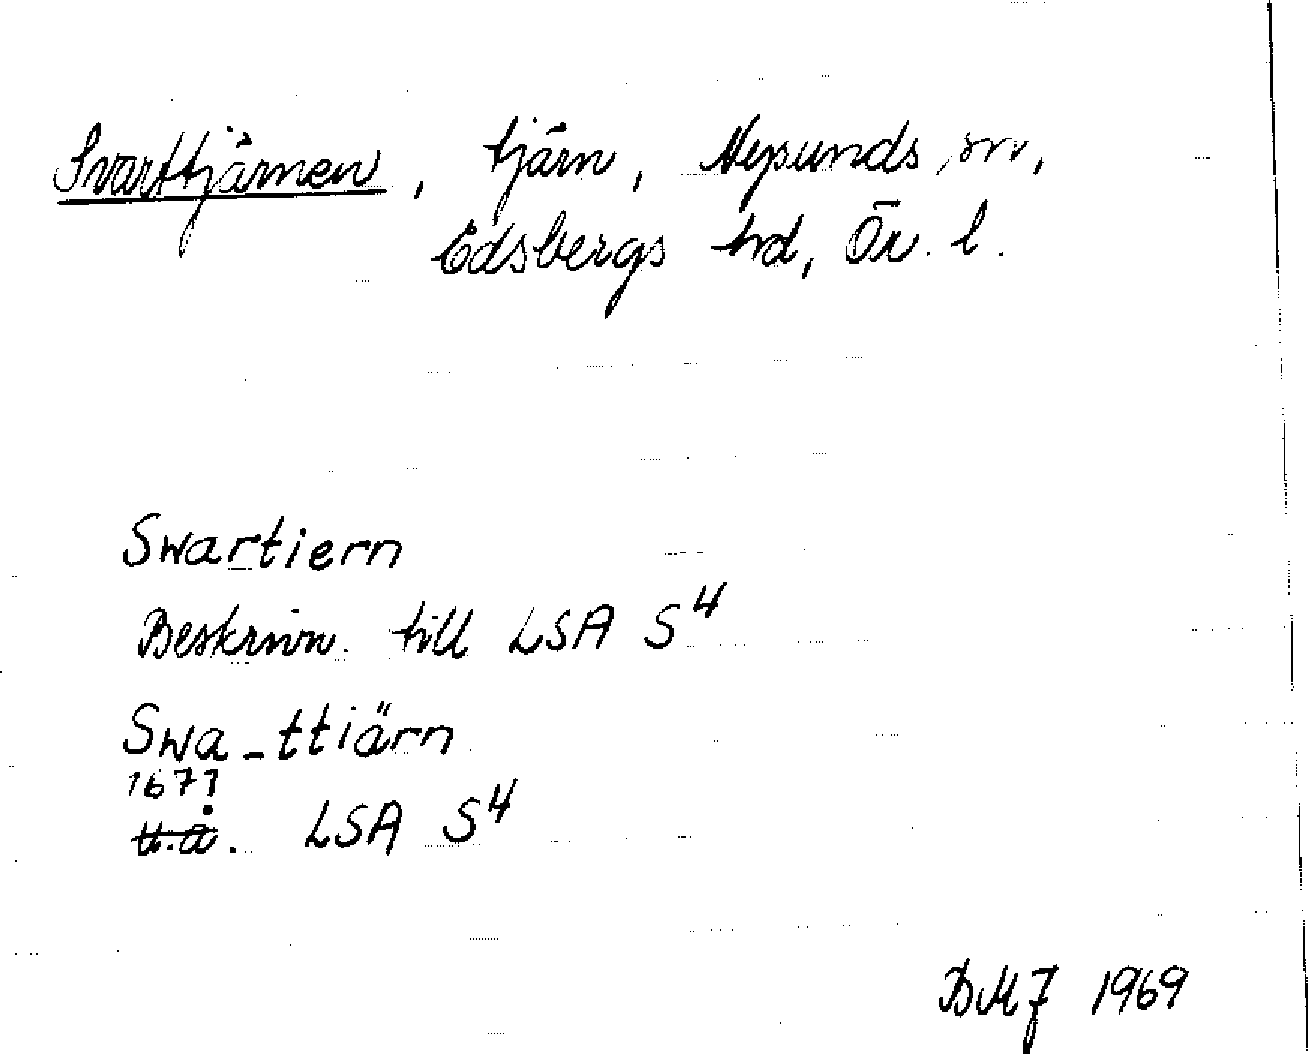 Svarttjärnen, tjärn, Nysunds sn,
Edsbergs hd, Ör. l.
Swartiern
Beskrivn. till LSA S4
Swa_ttiärn
167?
u.å. LSA S4
BMJ 1969